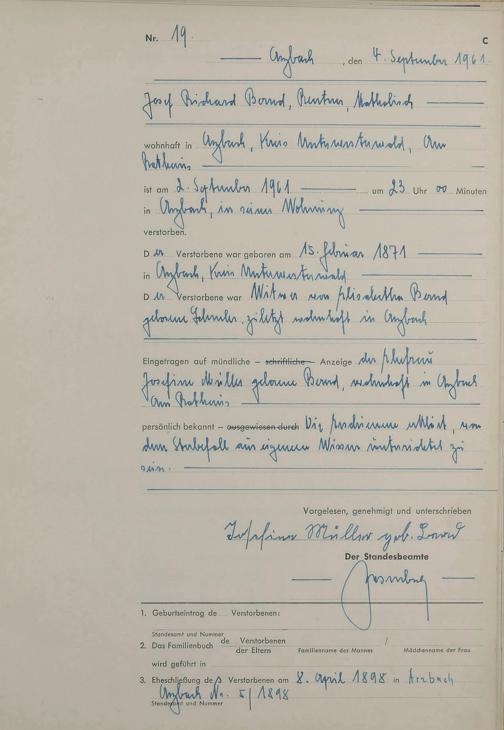 Nr. 19 C
Arzbach, den 4. September 1961
Josef Richard Bernd, Rentner, Katholisch
wohnhaft in Arzbach, Kreis Unterwesterwald, Am
Rathaus
ist am 2. September 1961 um 23 Uhr 00 Minuten
in Arzbach, in seiner Wohnung
verstorben.
Der Verstorbene war geboren am 15. Februar 1871
in Arzbach, Kreis Unterwesterwald
Der Verstorbene war Witwer von Elisabetha Bernd
geborene zuletzt wohnhaft in Arzbach
Eingetragen auf mündliche – schriftliche – Anzeige der Ehefrau
Josefine Müller geborene Bernd, wohnhaft in Arzbach
Am Rathaus
persönlich bekannt – ausgewiesen durch Die erklärt, von
dem Sterbefall aus eigenem Wissen unterrichtet zu
sein.
Vorgelesen, genehmigt und unterschrieben
Josefine Müller geb. Bernd
Der Standesbeamte
1. Geburtseintrag de Verstorbenen:
Standesamt und Nummer
2. Das Familienbuch de Verstorbenen /
der Eltern Familienname des Mannes Mädchenname der Frau
wird geführt in
3. Eheschließung des Verstorbenen am 8. April 1898 in Arzbach
Arzbach Nr. 5/1898
Standesamt und Nummer